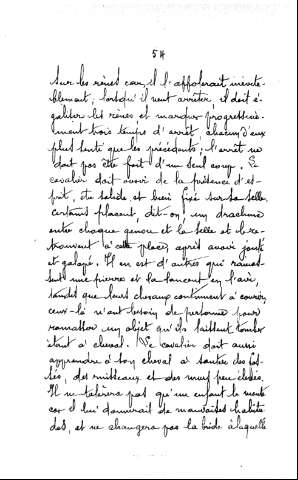 54
sur les rênes car il l'affolerait inévita-
blement; lorsqu'il veut arrêter, il doit é-
galiser les rênes et marquer progressive-
ment trois temps d'arrêt, chacun d'eux
plus lent que les précédents; l'arrêt ne
doit pas être fait d'un seul coup. Le
cavalier doit avoir de la présence d'es-
prit, être solide et bien fixé sur sa selle.
Certains placent, dit-on, un drachme
entre chaque genou et la selle et le re-
trouvent à cette place, après avoir sauté
et galopé. Il en est d'autres qui ramas-
sent une pierre et la lancent en l'air,
tandis que leurs chevaux continuent à courir,
ceux-là n'ont besoin de personne pour
ramasser un objet qu'ils laissent tomber
étant à cheval. Le cavalier doit aussi
apprendre à son cheval à sauter des fos-
sés, des ruisseaux et des murs peu élevés.
Il ne tolérera pas qu'un enfant le monte
car il lui donnerait de mauvaises habitu-
des, et ne changera pas la bride à laquelle